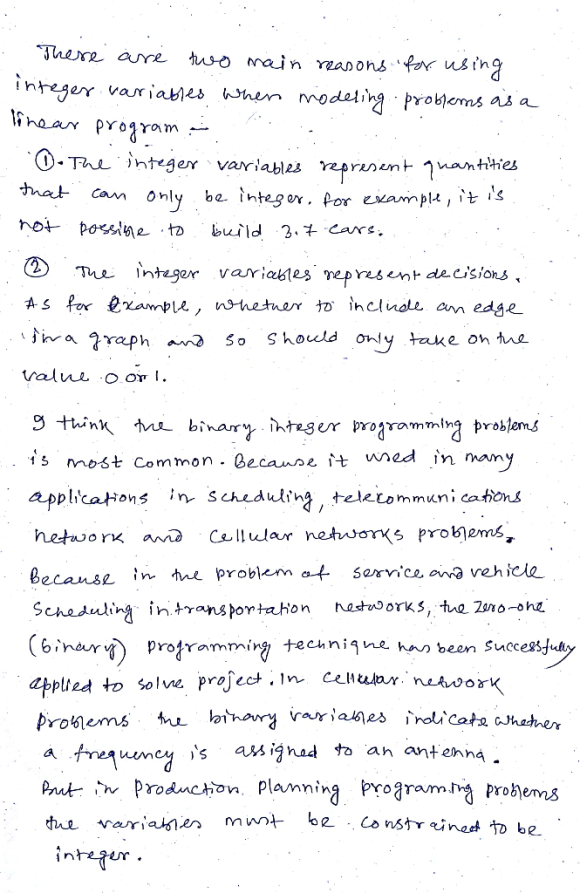 There are two main reasons for using
integer variables when modeling problems as a
linear program -
①. The integer variables represent quantities
that can only be integer. for example, it is
not possible to build 3.7 cars.
② The integer variables represent decisions.
As for Example, whether to include an edge
in a graph and so should only take on the
value 0 or 1.
I think the binary integer programming problems
is most common. Because it used in many
applications in scheduling, telecommunications
network and cellular networks problems.
Because in the problem of service and vehicle
Scheduling in transportation networks, the zero-one
(binary) programming technique has been successfully
applied to solve project. In cellular network
problems the binary variables indicate whether
a frequency is assigned to an antenna.
But in Production Planning programing problems
the variables must be constrained to be
integer.